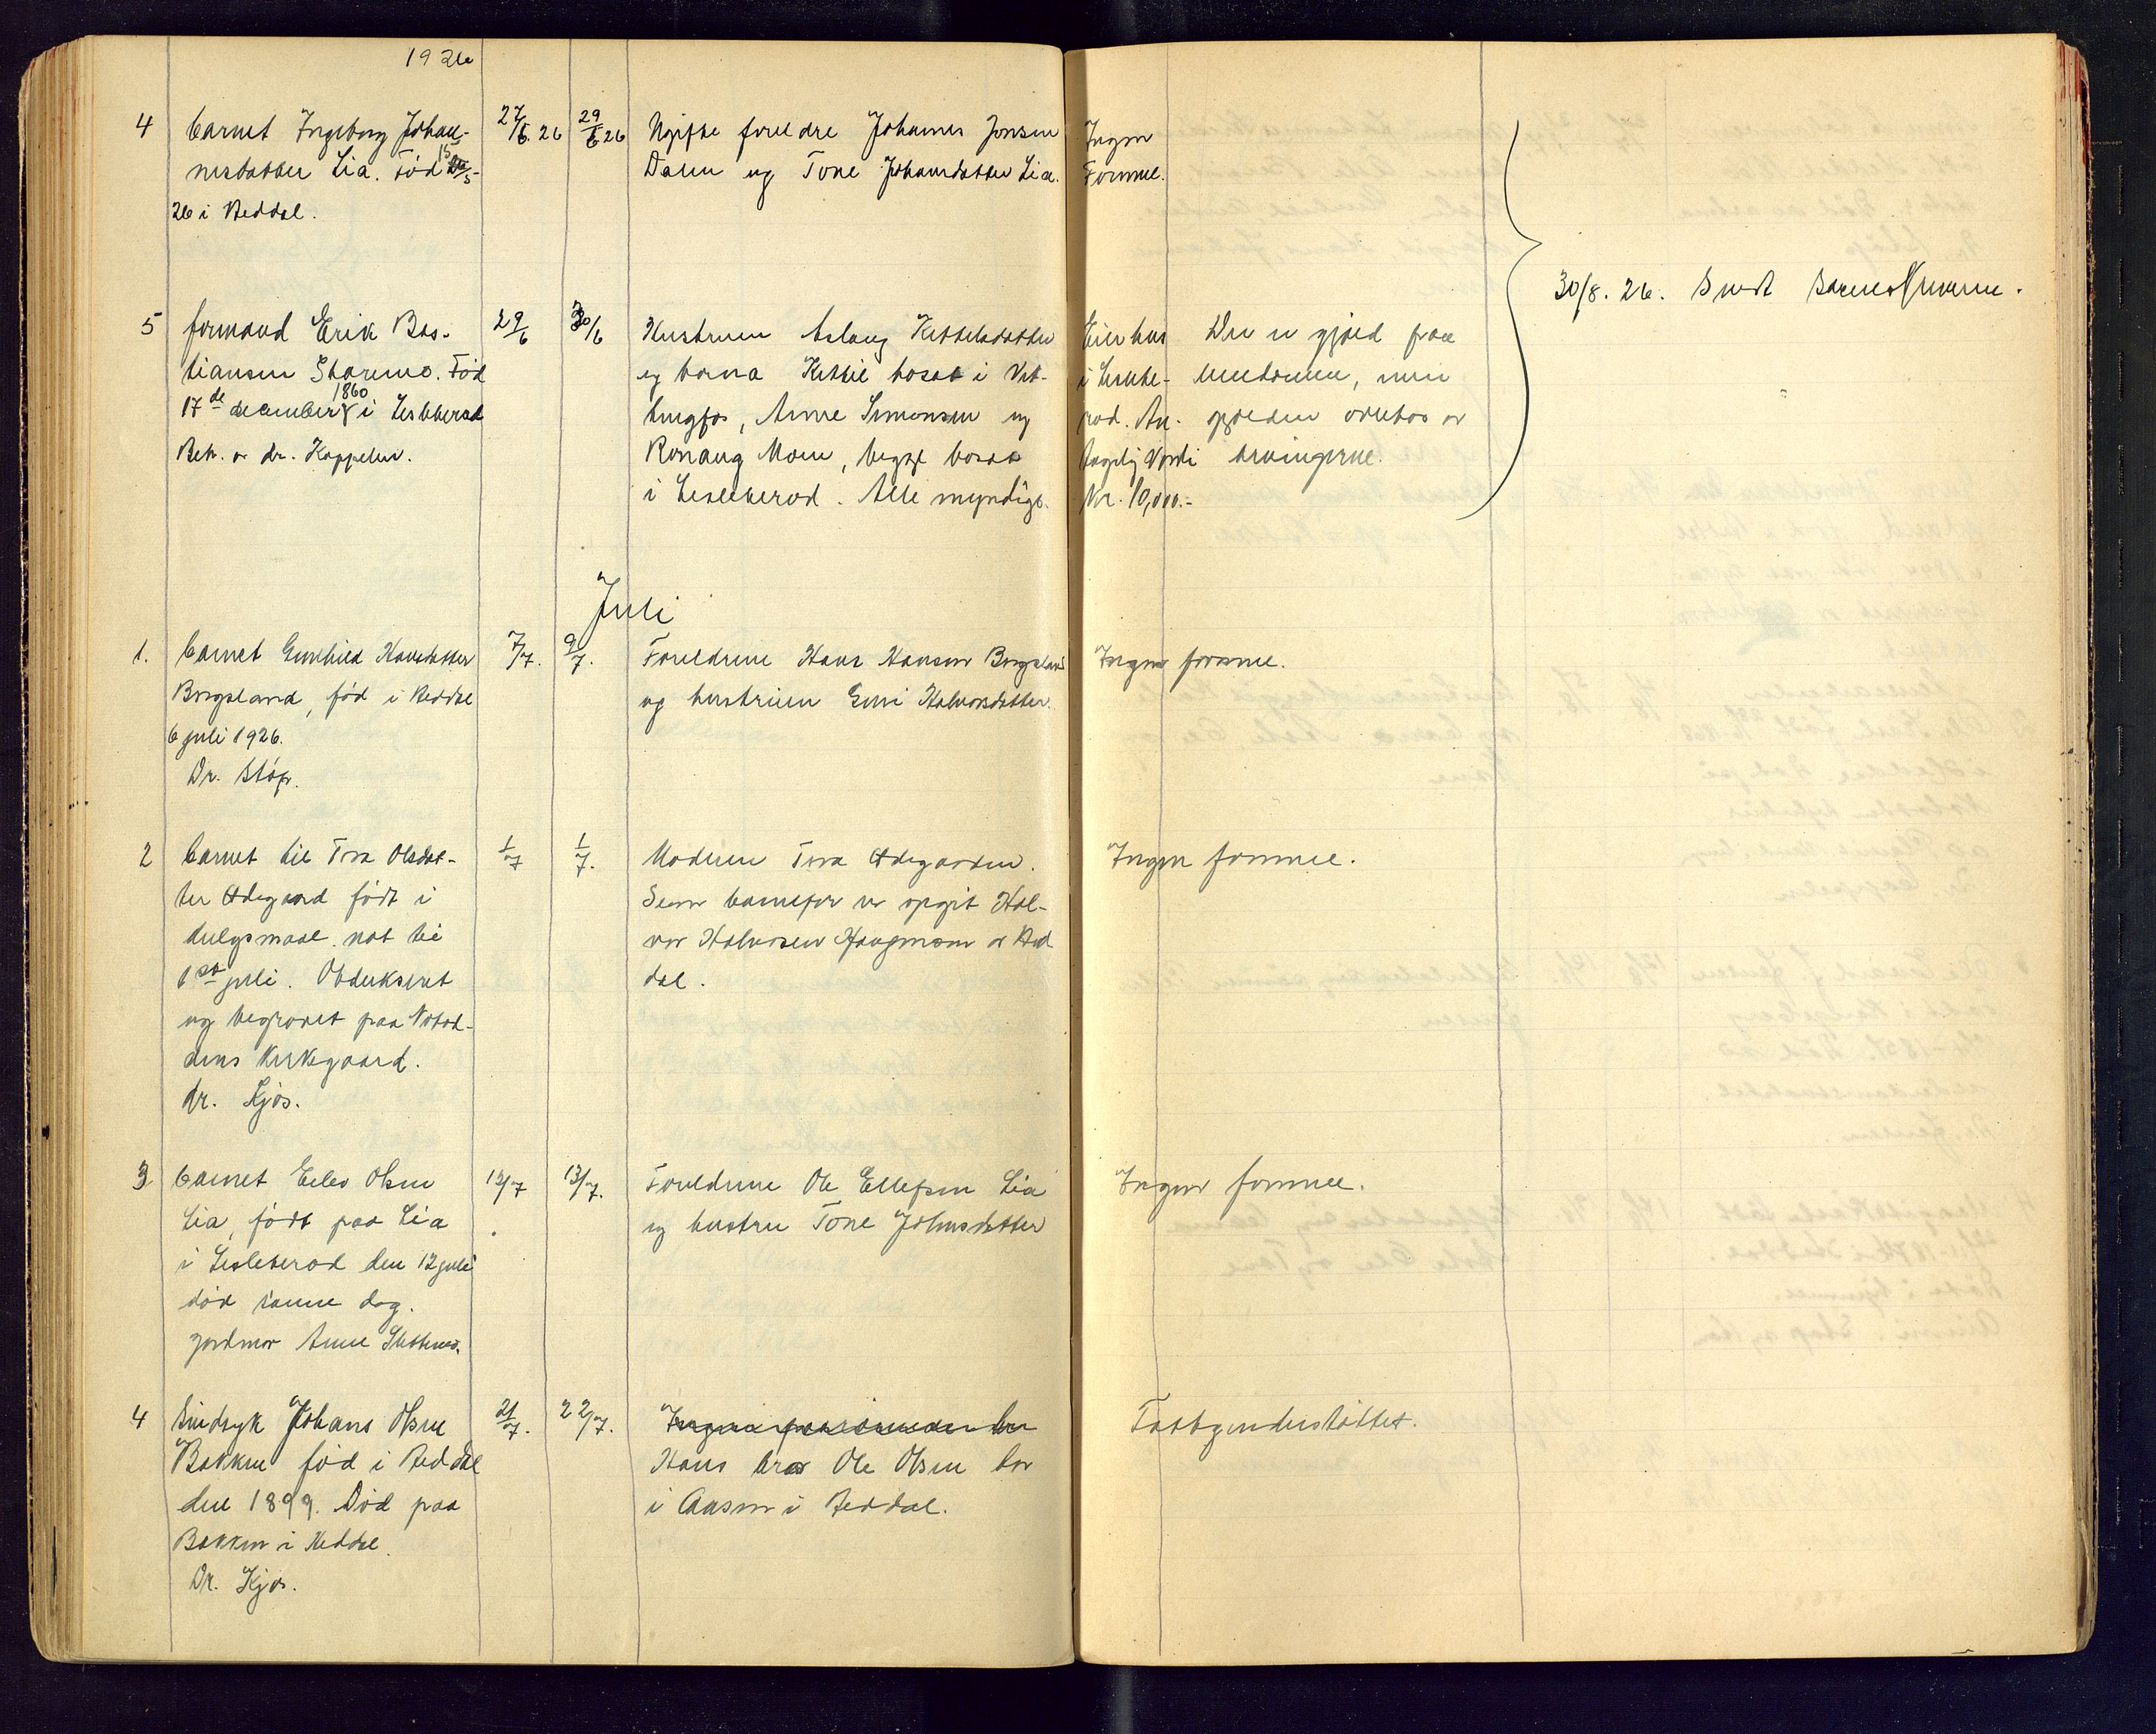 1926
4 barnet Ingeborg Johan-
nesdatter Lia. Född 15/5-
26 i Heddal.
27/6. 26 29/6 26
Ugifte foreldre Johannes Jonsen
Dalen og Tone Johannsdatter Lia.
Ingen
Formue.
30/8. 26. Sendt
5 formand Erik Bas-
tiansen Skarmo. Fød
17de december 1860 i Lisleherad
Beh. av dr. Kappelen.
29/6 30/6
Hustruen Aslaug Kittelsdatter
og barna Kittil bosat i Vit-
tingfos, Anne Simonsen og
Ronaug Moen, begge bosat
i Lisleherad. Alle myndige.
Eier hus
i Lisle-
rad. An-
tagelig Værdi
Kr. 10,000.-
Der er gjæld paa
eiendommen, men
gjælden overtas av
arvingerne.
Juli
1. barnet Gunhild Hansdatter
Borgsland, fød i Heddal
6 juli 1926.
Dr. Støp.
7/7. 9/7.
Foreldrene Hans Hansen Borgsland
og hustruen Guri Halvorsdatter.
Ingen formue.
2 barnet til Tora Olsdat-
ter Ødegaard født i
dulgsmaal nat til
1ste juli. Obduksert
og begravet paa Notod-
dens kirkegaard.
dr. Kjøs.
1/7 1/7.
Moderen Tora Ødegaarden.
Som barnefar er opgit Hal-
vor Halvorsen Haugmoen av Hed
dal.
Ingen formue.
3 barnet Eilev Olsen
Lia, født paa Lia
i Lisleherad den 12 juli
død samme dag.
jordmor Anne Slettemo.
12/7 13/7.
Foreldrene Ole Ellefsen Lia
og hustru Tone Johnsdatter
Ingen formue.
4 Sindsyk Johans Olsen
Bakken fød i Heddal
den 1899. Død paa
Bakken i Heddal.
Dr. Kjøs.
21/7. 22/7.
Hans bror Ole Olsen bor
i Aasen i Heddal.
Fattigunderstøttet.